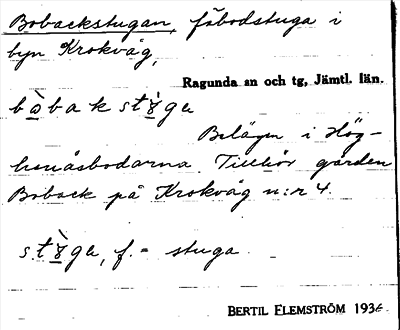 Bobackstugan, fäbodstuga i
byn Krokvåg,
Ragunda sn och tg, Jämtl. län.
Belägen i Hög-
henåsbodarna. Tillhör gården
Boback på Krokvåg n:r 4.
f. = stuga.
BERTIL ELEMSTRÖM 1936.